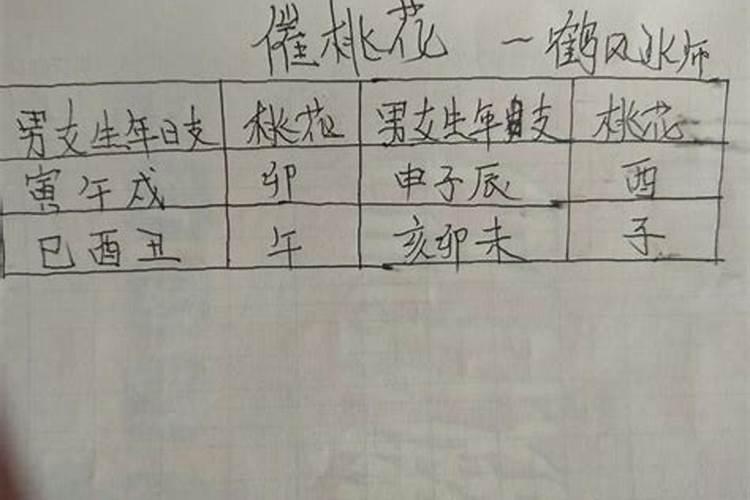 催桃花 一鹤风水师
男女生年日支 桃花 男女生年日支 桃花
寅午戌 卯 申子辰 酉
巳酉丑 午 亥卯未 子